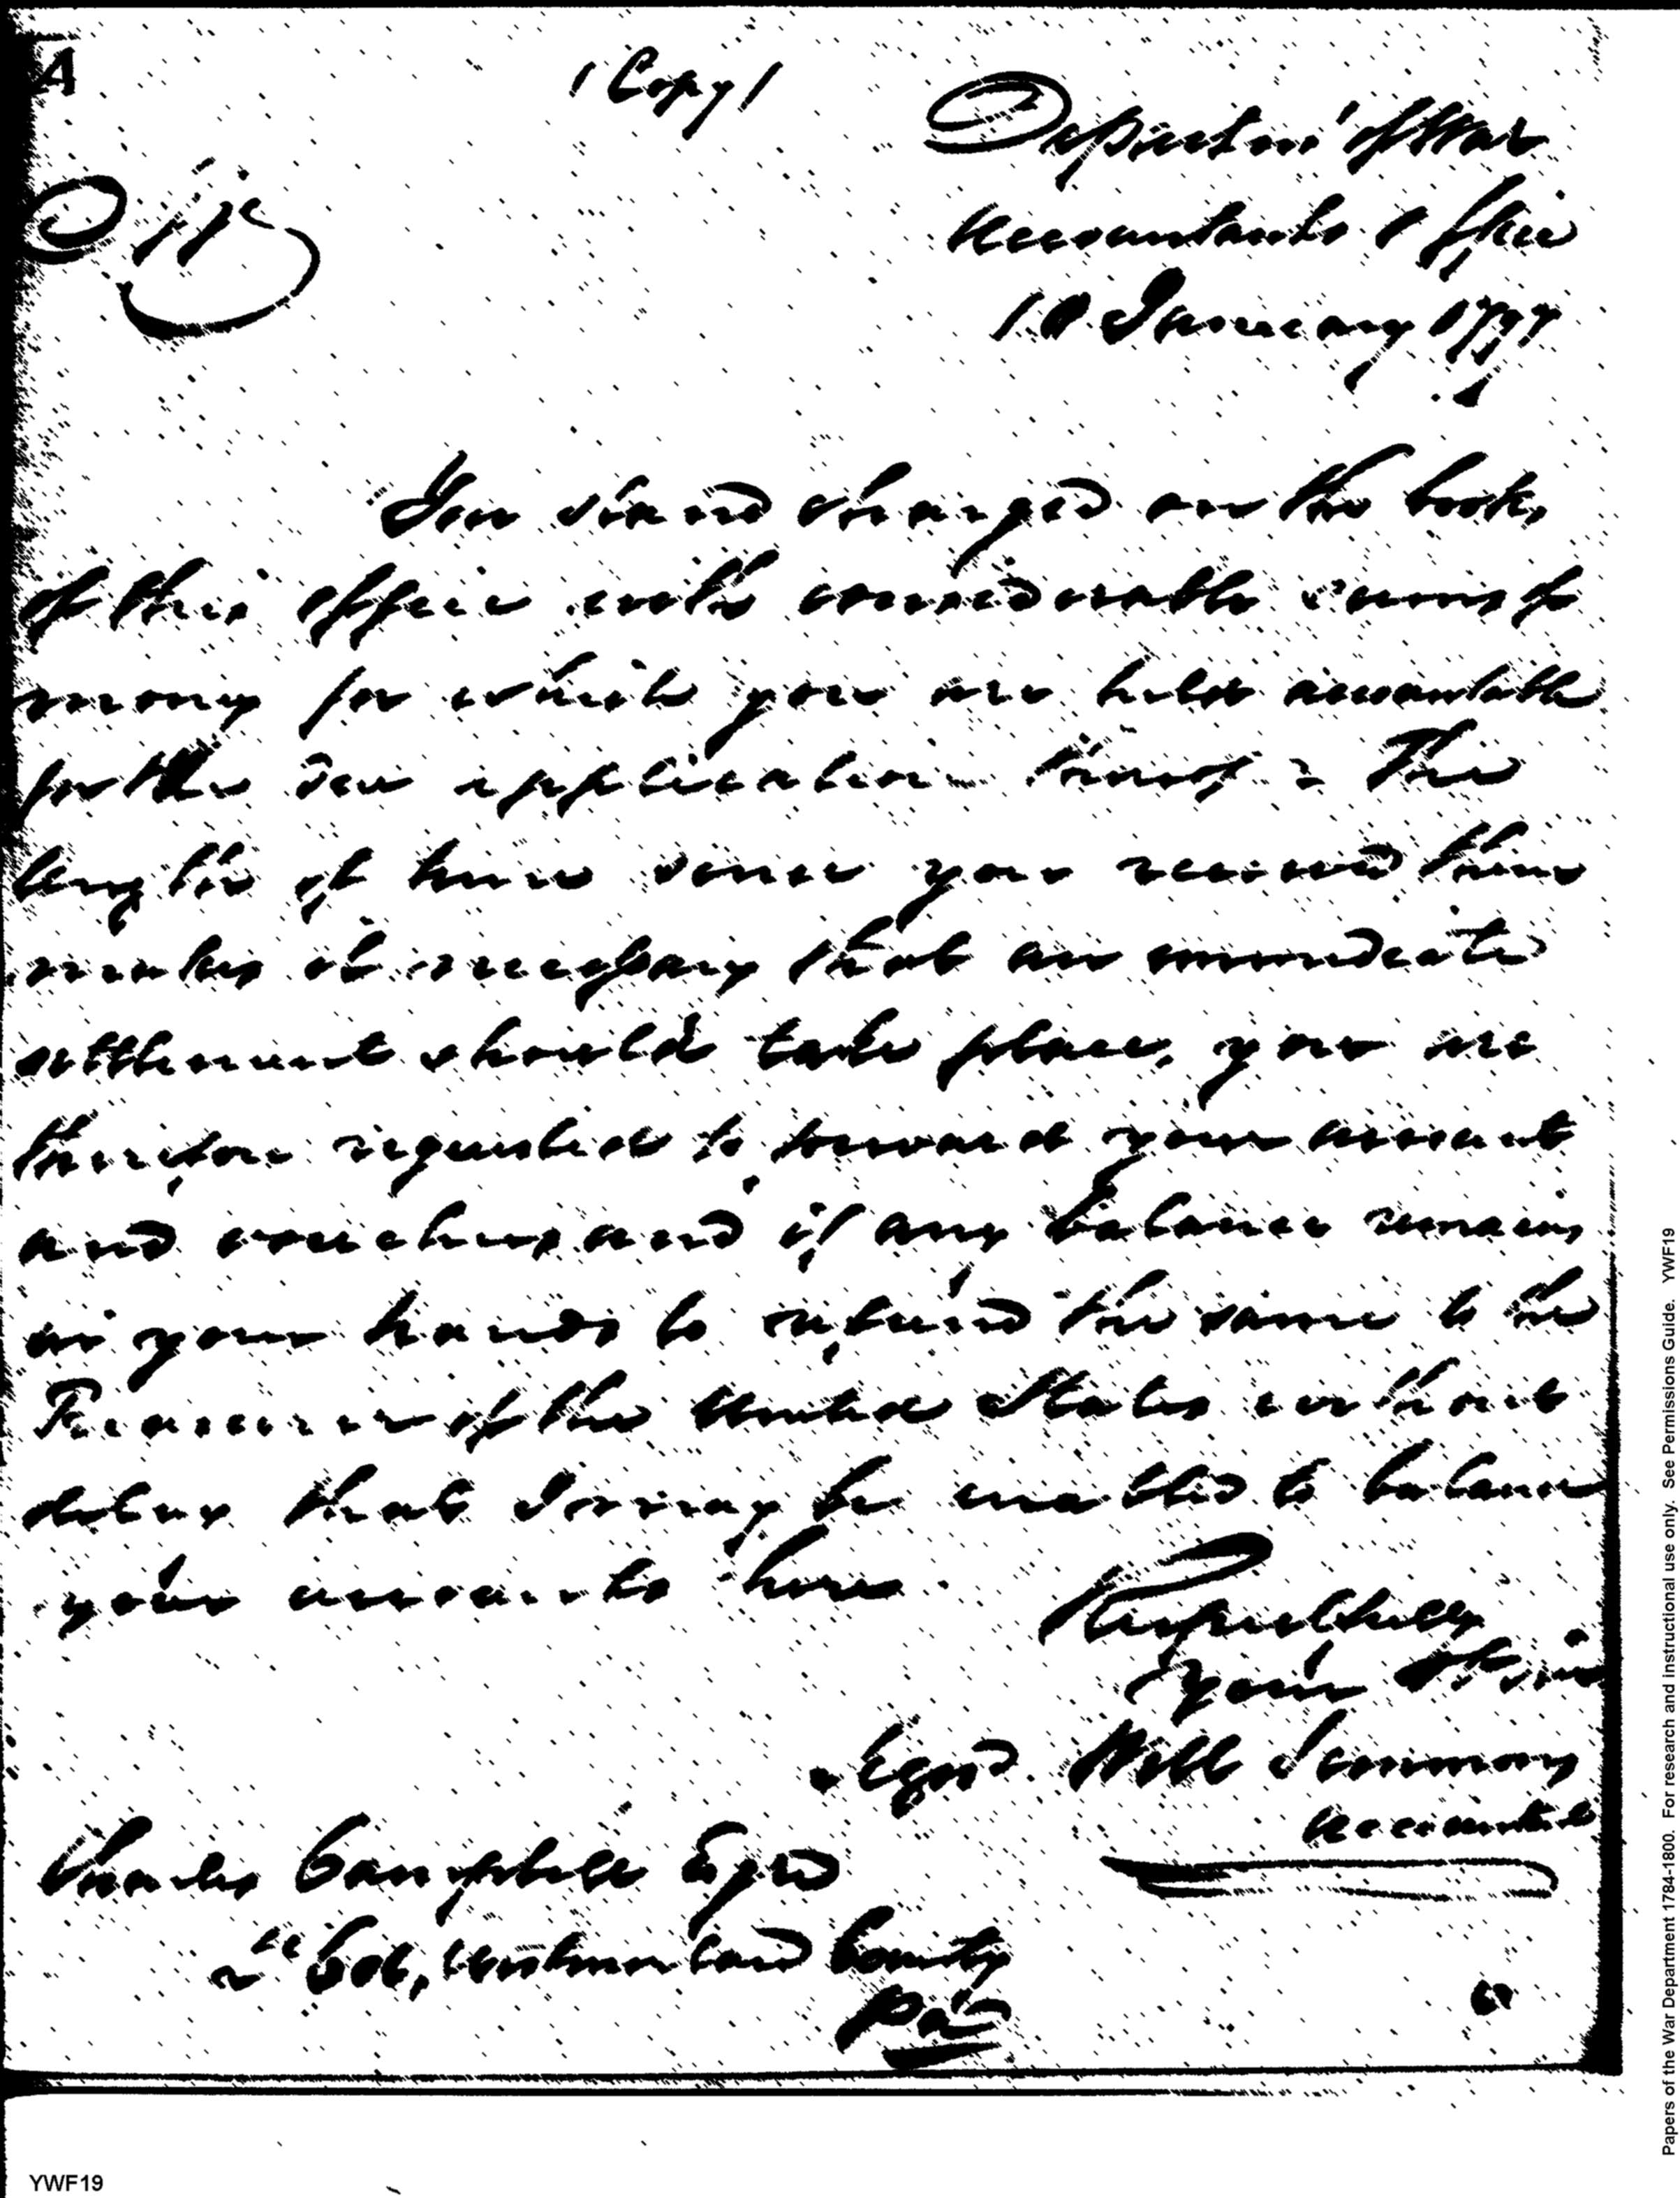 A
(Copy)
Departmt of War
Accountants Office
10 January 1797
You stand charged on the books
of this office with considerable sums of
money for which you are held accountable
for the due application thereof & The
length of time since you received them
makes it necessary that an immediate
settlement should take place, you are
therefore requested to forward your account
and vouchers and if any balance remains
in your hands to refund the same to the
Treasurer of the United States without
delay that I may be enabled to balance
your accounts here
Respectfully
your
signed Will Simmons
Accountant
Charles Campbell Esqr
Col, Westmorland County
Pa
YWF19
Papers of the War Department 1784-1800. For research and instructional use only. See Permissions Guide. YWF19